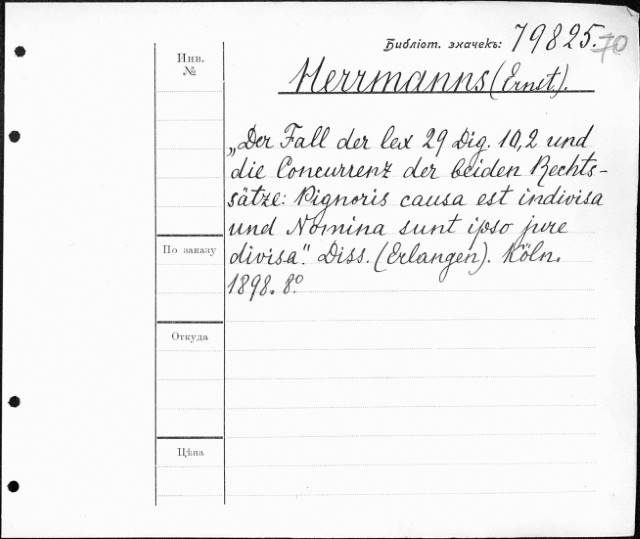 Библіот. значекъ: 79825.70
Инв.
№
Herrmanns (Ernst).
„Der Fall der lex 29 Dig. 10,2 und
die Concurrenz der beiden Rechts-
sätze: Pignoris causa est indivisa
und Nomina sunt ipso jure
divisa“. Diss. (Erlangen). Köln.
1898. 8°
По заказу
Откуда
Цѣна